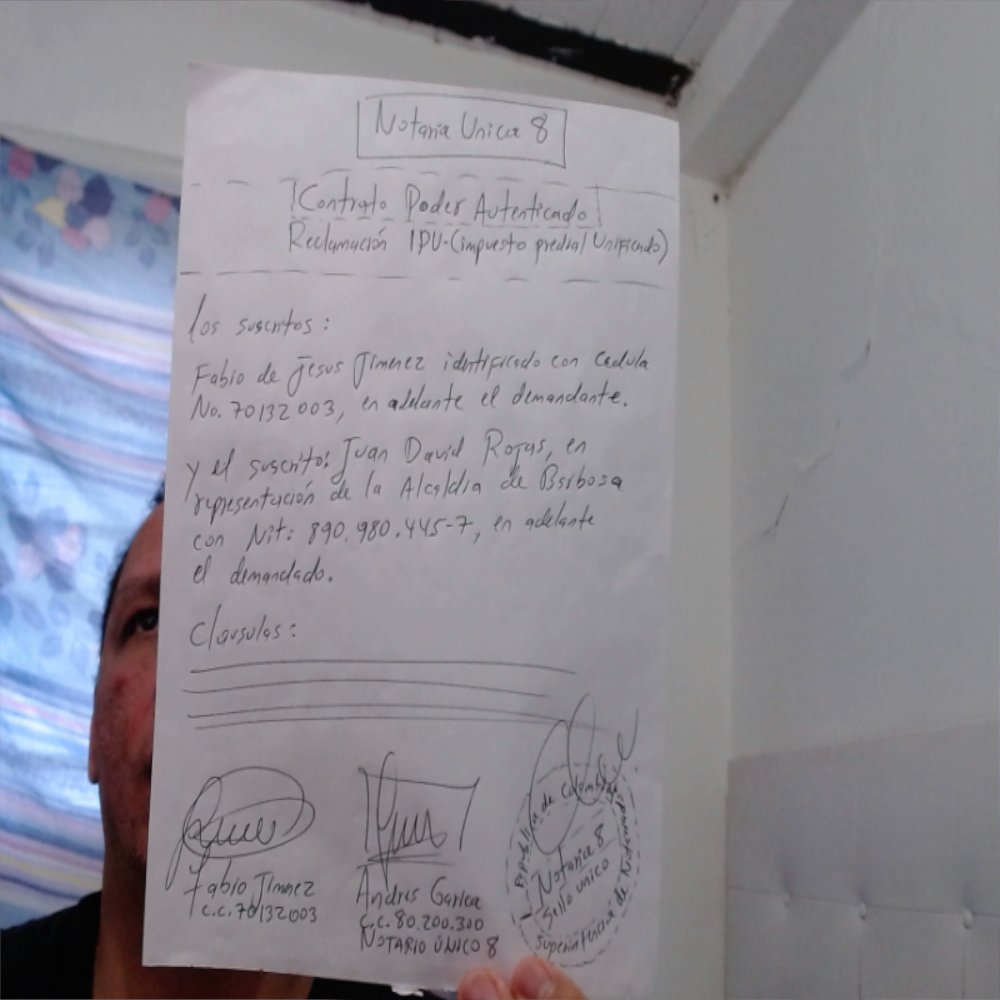 Notaria Unica 8
Contrato Poder Autenticado
Reclamación IPU-(impuesto predial Unificado)
los suscritos:
Fabio de Jesus Jimenez identificado con Cedula
No. 70132003, en adelante el demandante.
y el suscrito: Juan David Rojas, en
representación de la Alcaldia de Barbosa
con Nit: 890.980.445-7, en adelante
el demandado.
Clausulas:
Fabio Jimnez
C.C. 70132003
Andres Garica
C.C. 80.200.300
NOTARIO ÚNICO 8
Republica de Colombia
Notaria 8
Sello unico
Superintencia de Notariado